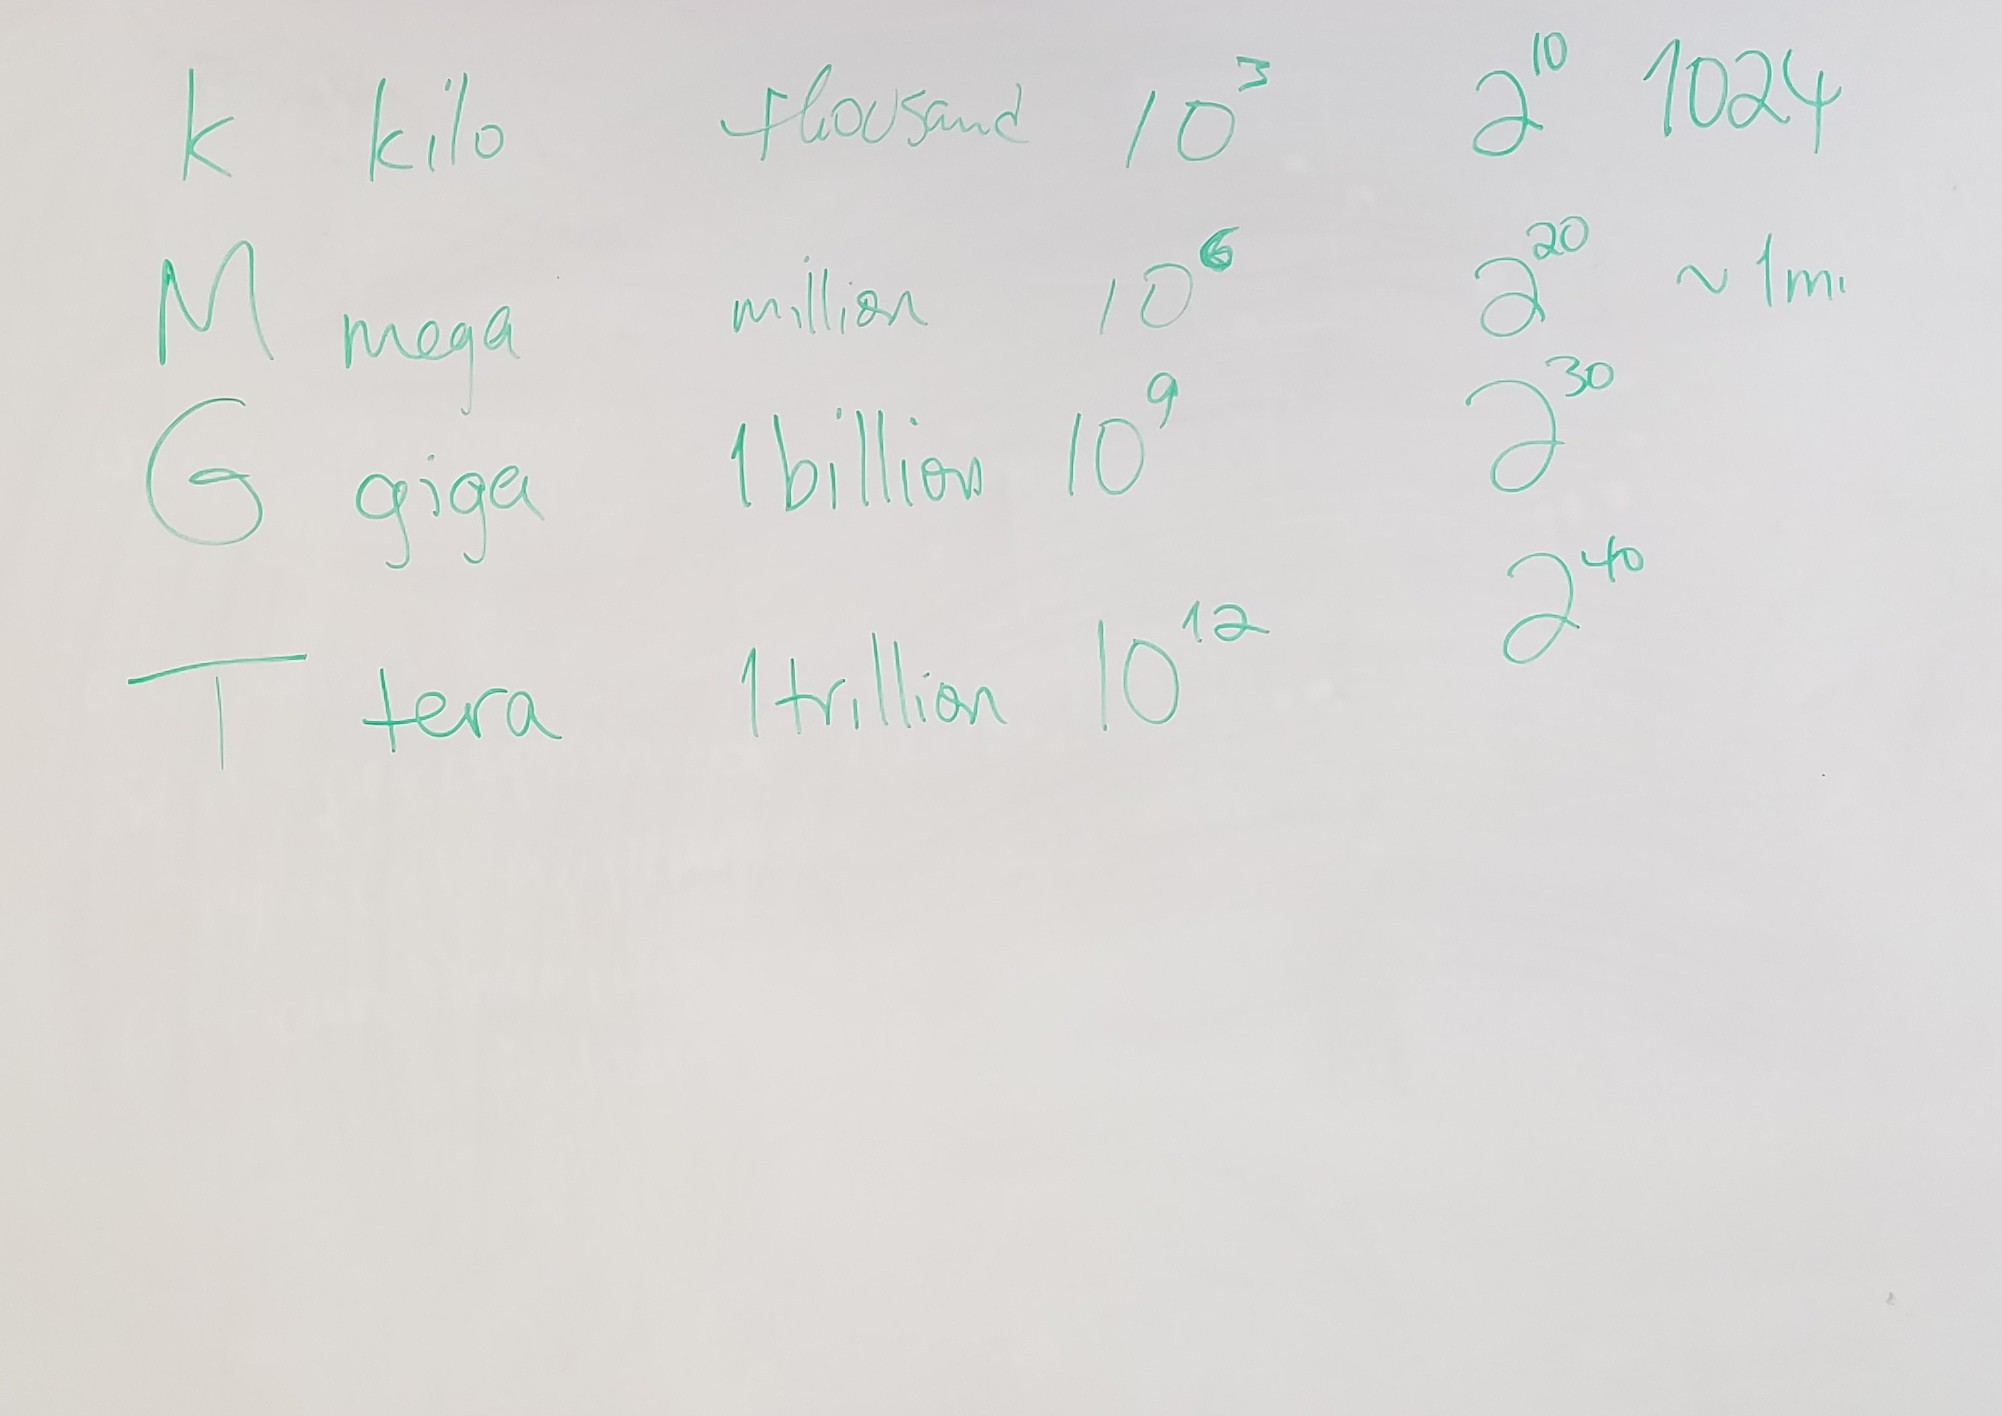 k kilo thousand 10³ 2¹⁰ 1024
M mega million 10⁶ 2²⁰ ~1mi
G giga 1billion 10⁹ 2³⁰
T tera 1trillion 10¹² 2⁴⁰